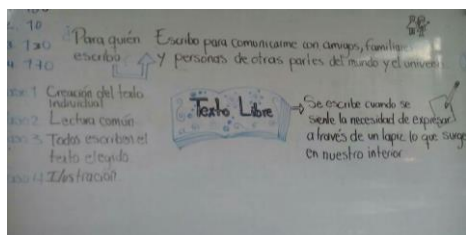 1.0
1 30
4 1 10
¿Para quién
escribo?
Escribo para comunicarme con amigos, familiares
y personas de otras partes del mundo y el universo.
1 Creación del texto
individual
2 Lectura común
3 Todos escriben el
texto elegido
4 Ilustración
Texto Libre
Se escribe cuando se
siente la necesidad de expresar
a través de un lapiz lo que surge
en nuestro interior